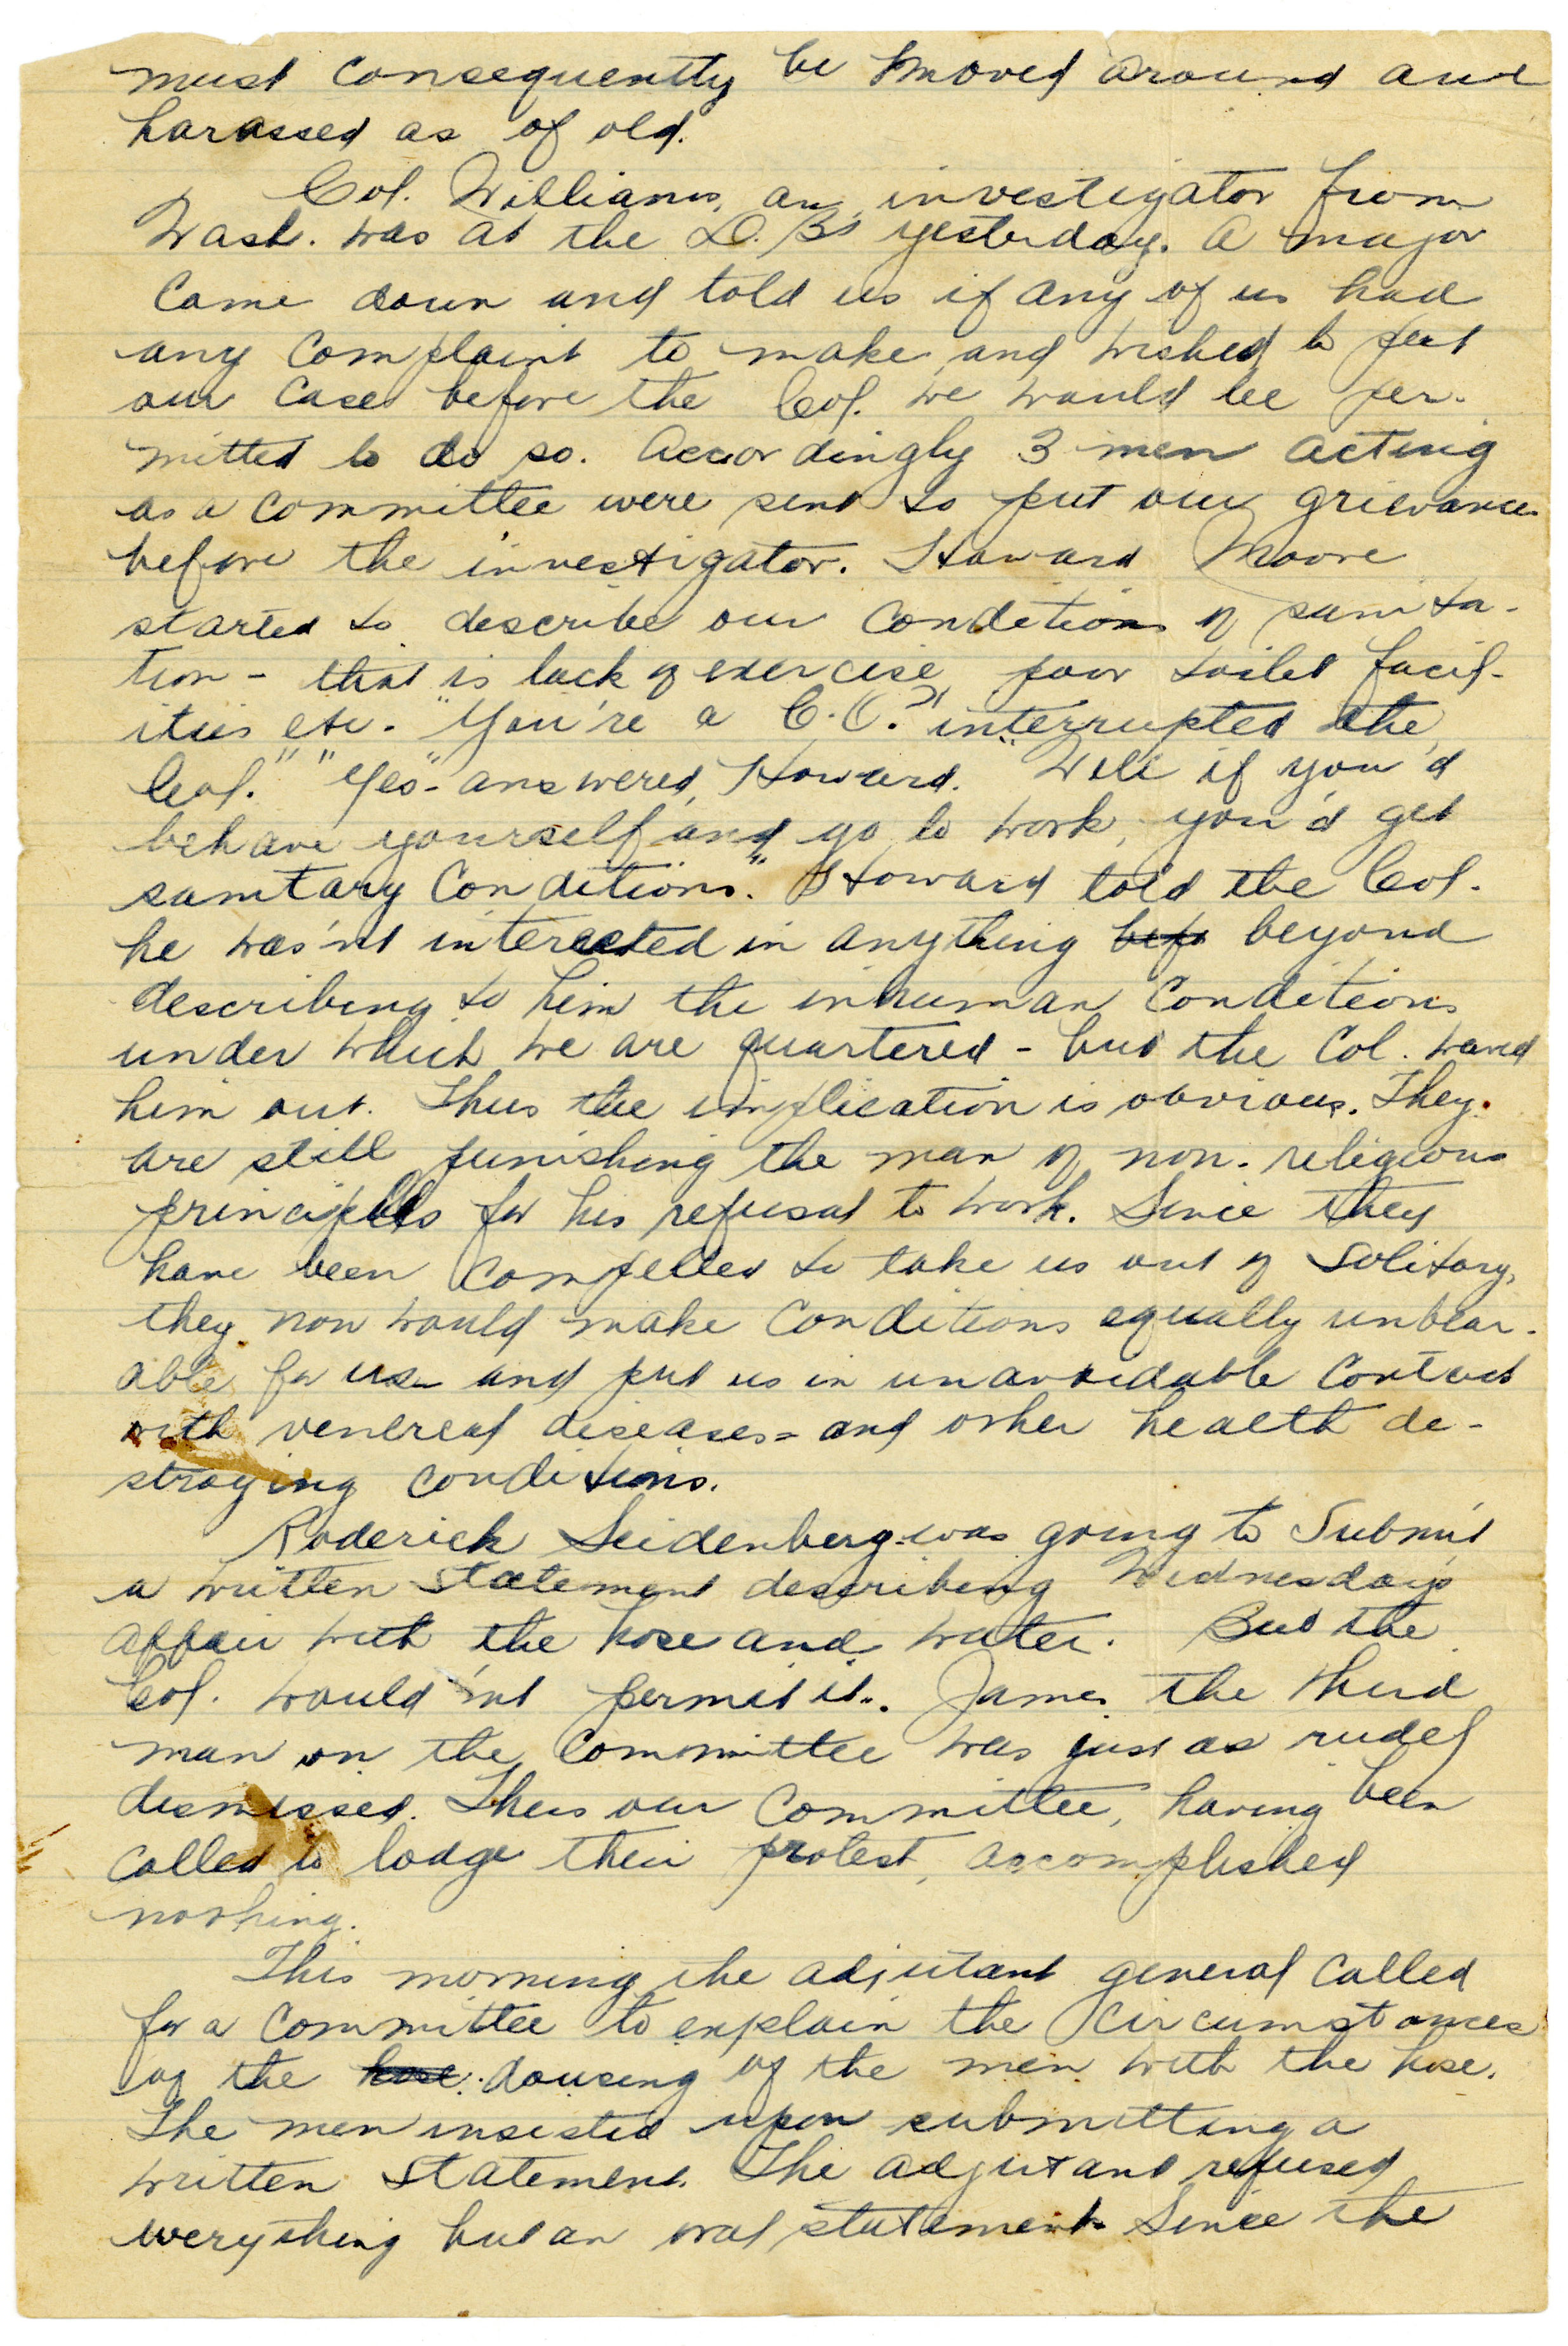 must consequently be moved around and
harassed as of old.
Col. Williams, an investigator from
Wash. was at the D.B. yesterday. A major
came down and told us if any of us had
any complaint to make and wished to put
our case before the Col. we would be per-
mitted to do so. Accordingly 3 men acting
as a committee were sent to put our grievances
before the investigator. Howard Moore
started to describe our conditions of sanita-
tion - that is lack of exercise, poor toilet facil-
ities etc. "You're a C.O.?" interrupted the
Col. "Yes" answered Howard. "Well if you'd
behave yourself and go to work, you'd get
sanitary conditions." Howard told the Col.
he was'nt interested in anything befo beyond
describing to him the inhuman conditions
under which we are quartered - but the Col. waved
him out. Thus the implication is obvious. They
are still punishing the man of non-religious
principles for his refusal to work. Since they
have been compelled to take us out of solitary,
they now would make conditions equally unbear-
able for us - and put us in unavoidable contact
with venereal diseases - and other health de-
stroying conditions.
Roderick Seidenberg was going to submit
a written statement describing Wednesday's
affair with the hose and water. But the
Col. would'nt permit it. James the third
man on the committee was just as rudel
dismissed. Thus our committee, having been
called to lodge their protest, accomplished
nothing.
This morning the adjutant general called
for a committee to explain the circumstances
of the hose dousing of the men with the hose.
The men insisted upon submitting a
written statement. The adjutant refused
everything but an oral statement. Since the